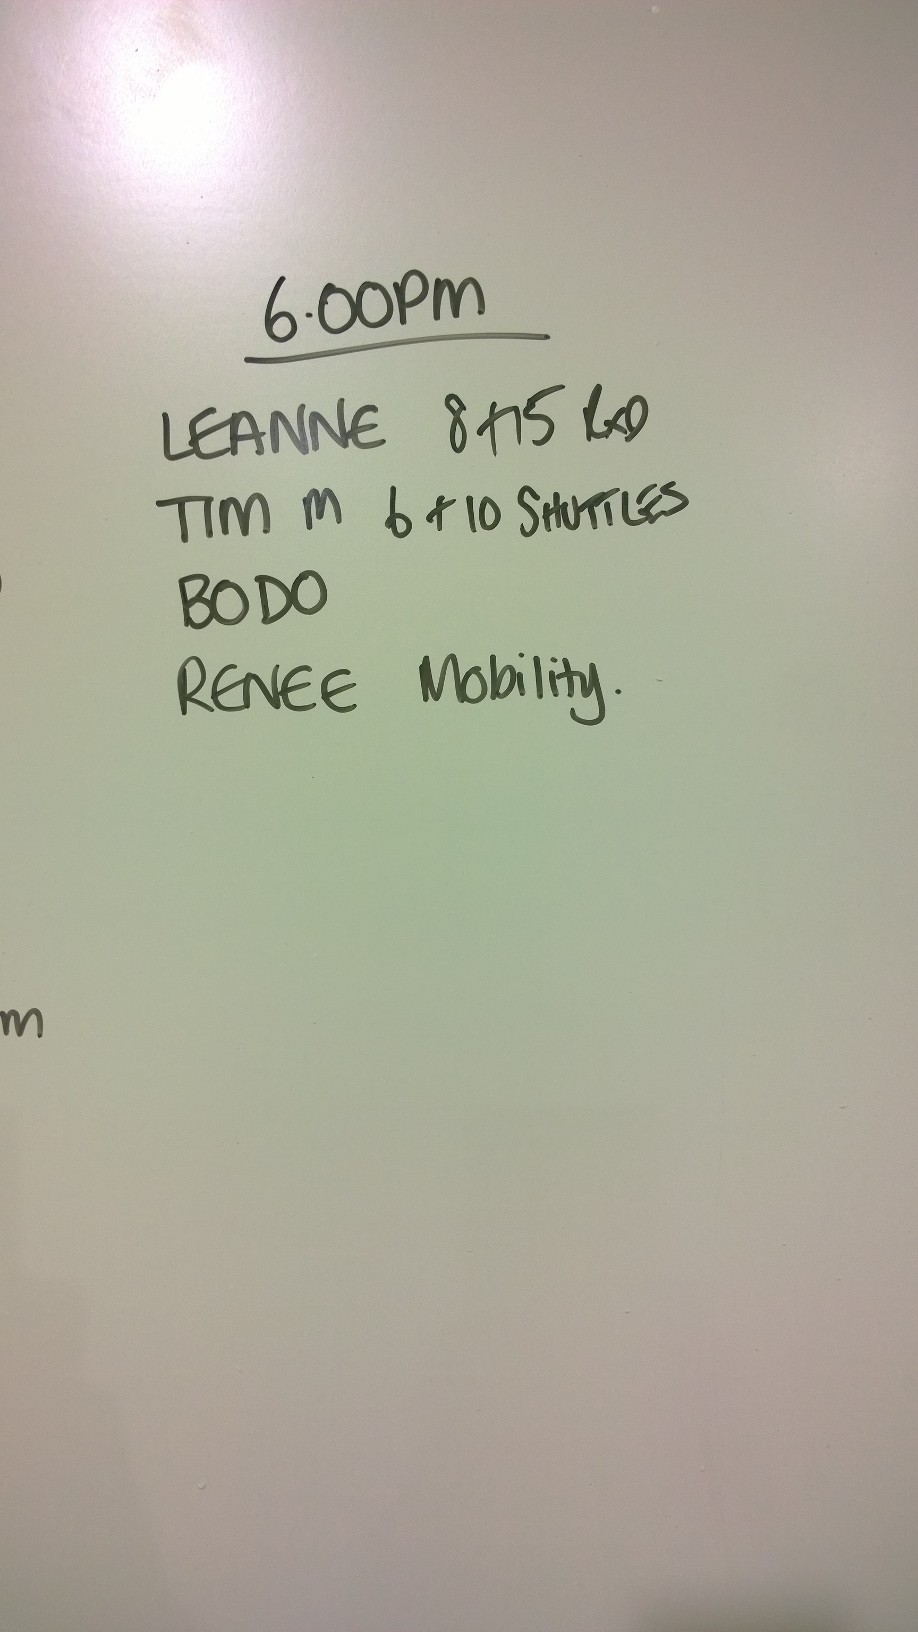 6.00PM
LEANNE 8+15 RxD
TIM M 6+10 SHUTTLES
BODO
RENEE Mobility.
m